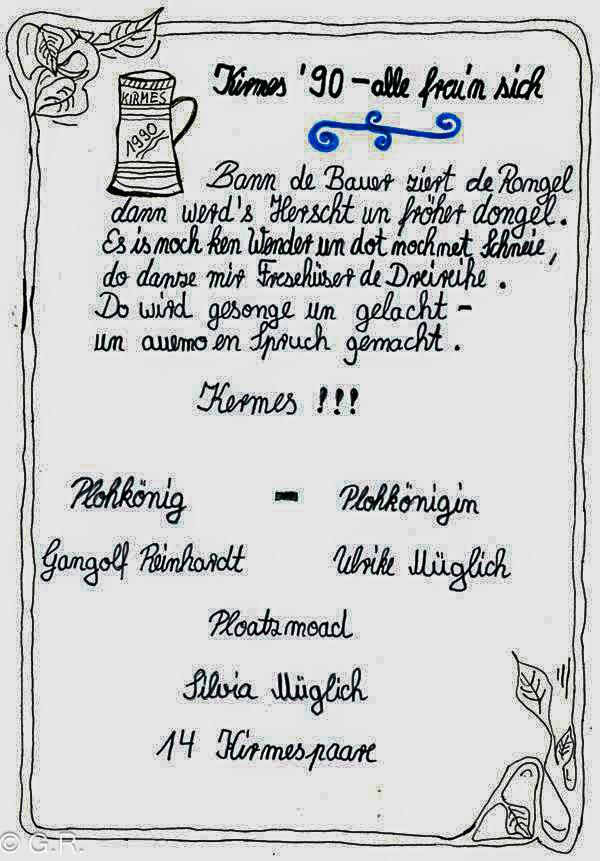 Kirmes '90 – alle freu'n sich
KIRMES
1990
Bann de Bauer ziert de Rangel
dann werd's Herscht un fröher dongel.
Es is noch ken Wonder un dot noch net Schneie,
do danze mir Fresehüser de Dreireihe.
Do wird gesonge un gelacht –
un auemo en Spruch gemacht.
Kermes !!!
Plohkönig – Plohkönigin
Gangolf Reinhardt Ulrike Müglich
Ploatzmoad
Silvia Müglich
14 Kirmespaare
© G.R.